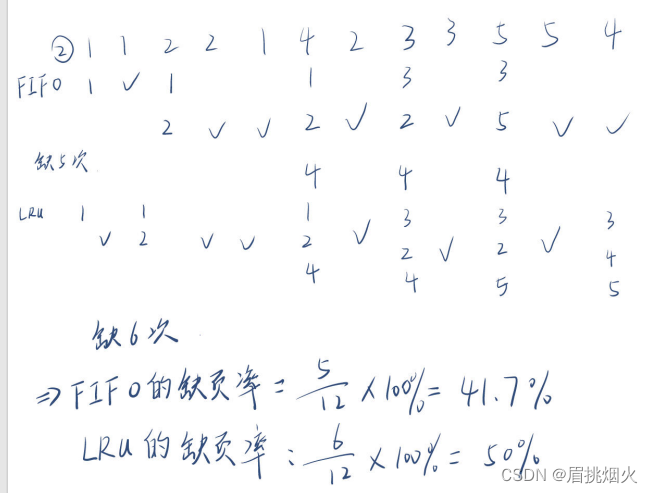 ② 1 1 2 2 1 4 2 3 3 5 5 4
FIFO 1 ✓ 1 1 3 3
2 ✓ ✓ 2 ✓ 2 ✓ 5 ✓ ✓
缺5次 4 4 4
LRU 1 1 1 3 3 3
✓ 2 ✓ ✓ 2 ✓ 2 ✓ 2 ✓ 4
4 4 5 5
缺6次
⇒ FIFO的缺页率 = 5/12 × 100% = 41.7%
LRU的缺页率: 6/12 × 100% = 50%
CSDN @眉挑烟火